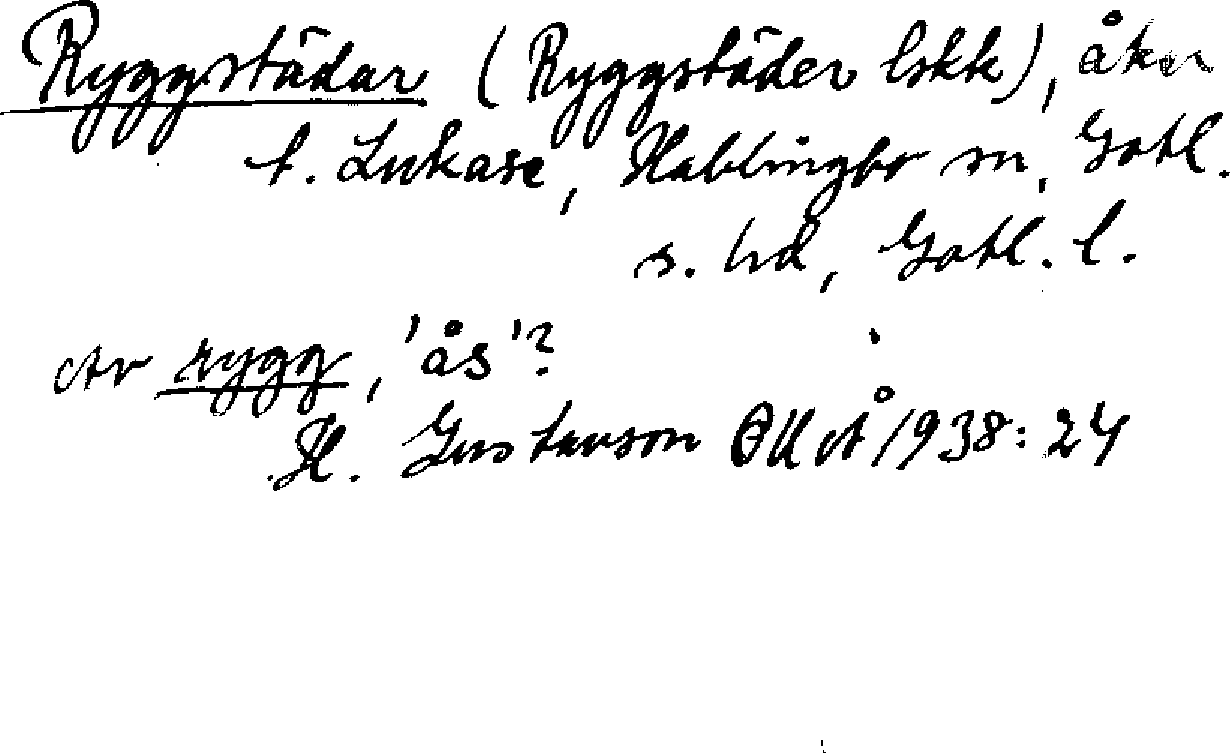 Ryggstädar (Ryggstäder lskk), åkr
t. Lukase, Hablingbo sn, Gotl.
s. hd, Gotl. l.
Av rygg, 'ås'?
H. Gustavson OUÅ 1938: 24